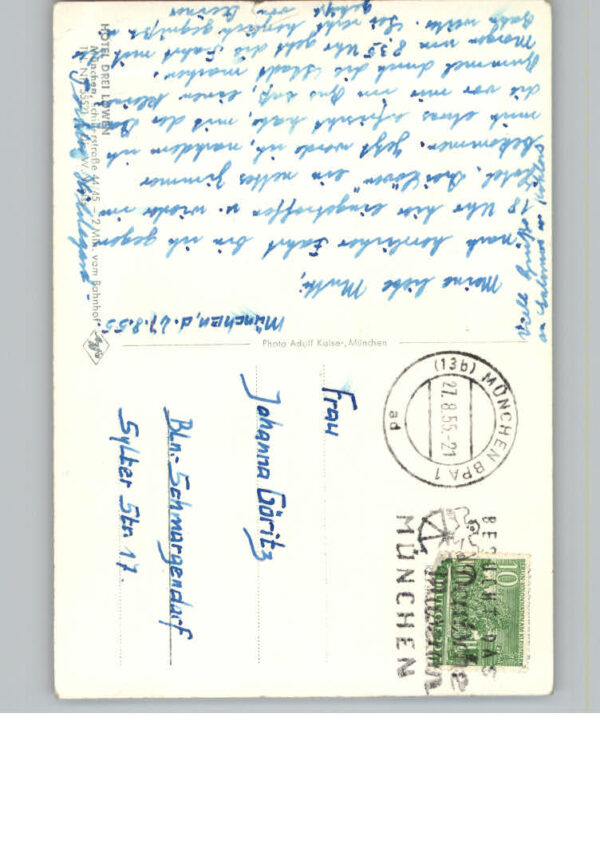 München, d. 27.8.55.
Meine liebe Mutti,
nach herrlicher Fahrt bin ich gegen
18 Uhr hier eingetroffen u. wieder im
Hotel, Drei Löwen ein nettes Zimmer
bekommen. Jetzt werde ich, nachdem ich
mich etwas erfrischt habe, mit der
die vor mir am Bus saß, einen kleinen
Bummel durch die Stadt machen.
Morgen um 8.35 Uhr geht die Fahrt mit
weiter. Sei recht herzlich gegrüßt u.
geküßt von Deiner
HOTEL DREI LÖWEN
München, Schillerstraße 8
2 Min. vom Bahnhof
Agfa
Photo Adolf Kaiser, München
(13b) MÜNCHEN BPA 1
27.8.55.-21
ad
BESUCHT DAS
Deutsche
Museum
MÜNCHEN
10
Frau
Johanna Göritz
Bln.-Schmargendorf
Sylter Str. 17.